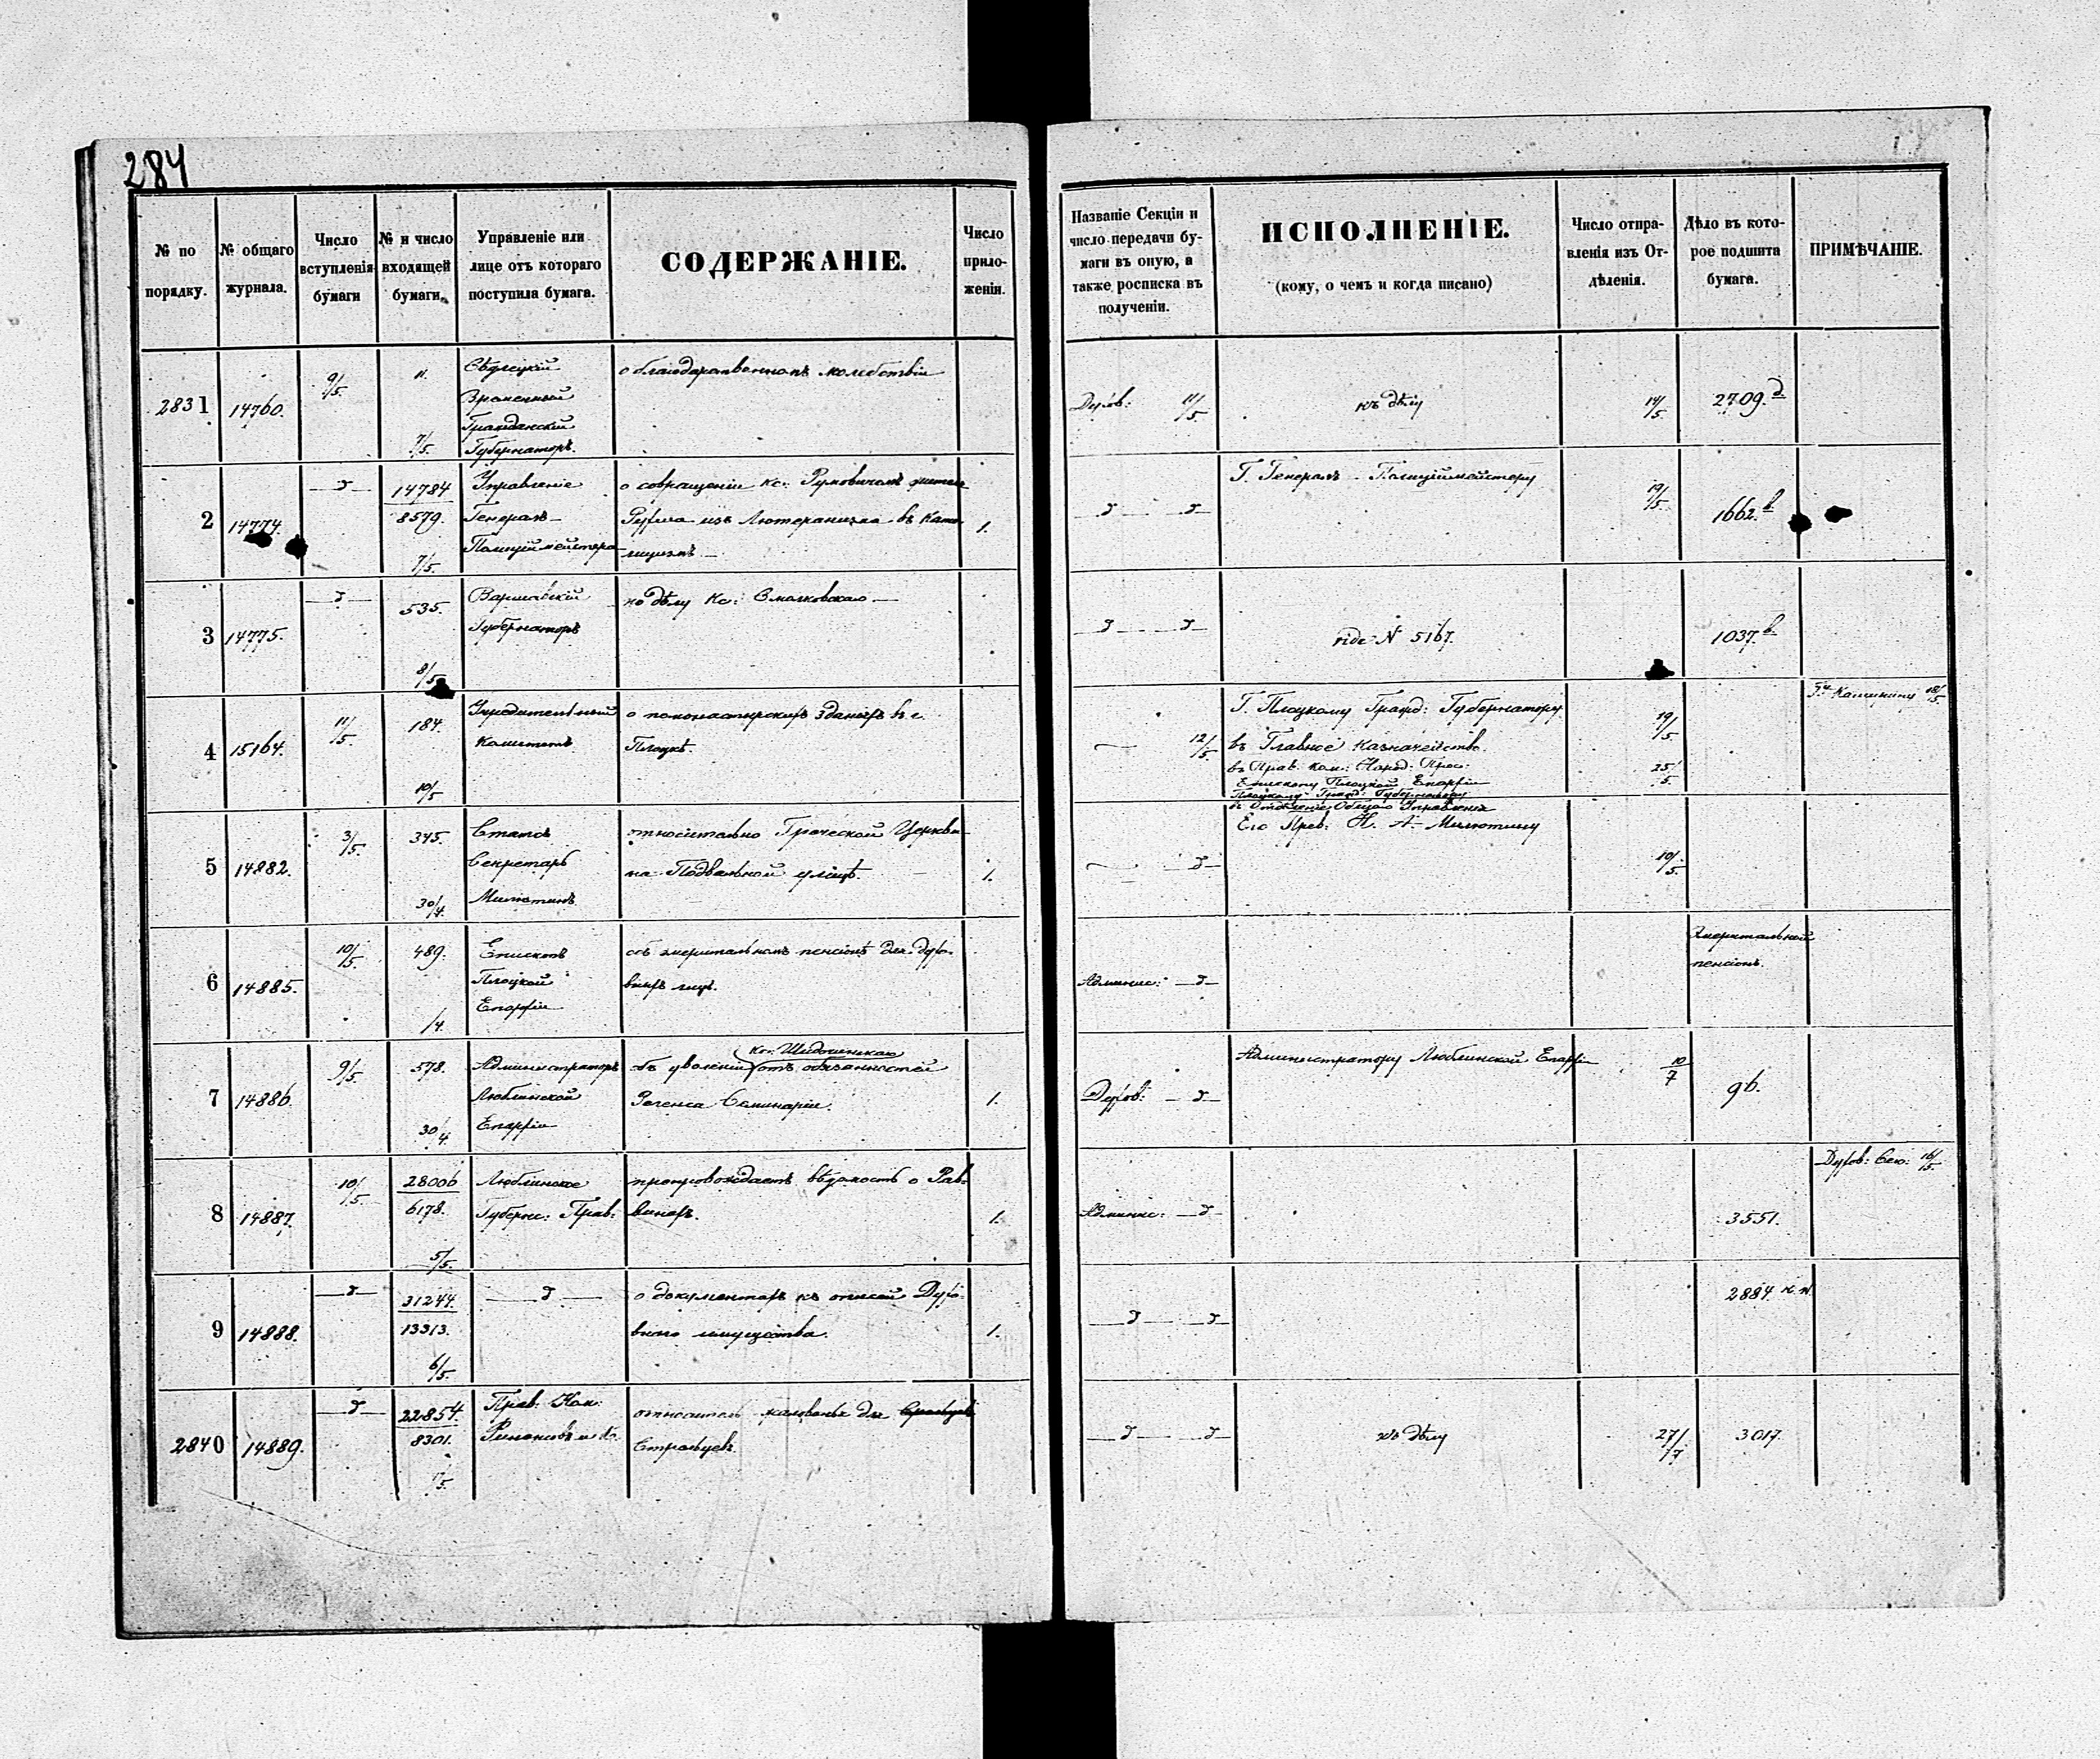 284
№ по порядку.
№ общаго журнала.
Число вступленія бумаги
№ и число входящей бумаги.
Управленіе или лице отъ котораго поступила бумага.
СОДЕРЖАНІЕ.
Число прило-
женіи.
Названіе Секціи и
число передачи бу-
маги въ оную, а
также росписка въ
полученіи.
ИСПОЛНЕНІЕ.
(кому, о чемъ и когда писано)
Число отпра-
вленія изъ От-
дѣленія.
Дѣло въ кото-
рое подшита
бумага.
ПРИМѢЧАНІЕ.
2831 14760. 9/5. 11. 7/5.
Сѣдлецкій
Временный
Гражданскій
Губернаторъ.
о благодарственномъ молебствіи
Духов: 11/5
къ дѣлу
14/5
2709. д
2 14774. д 14784
8579.
7/5.
Управленіе
Генералъ-
Полицiймейстера
о совращеніи Кс:
изъ Лютеранизма въ Като-
лицизмъ
1.
д д
Г. Генералъ-Полицiймейстеру
19/5
1662. в
3 14775. д 535. 8/5
Варшавскій
Губернаторъ
по дѣлу Кс: Смолковскаго
д д
vide № 5167.
1037. в
4 15164. 11/5. 184. 10/5
Учредительный
Комитетъ
о помонастырскихъ зданіяхъ въ г.
Плоцкѣ.
12/5
Г. Плоцкому Гражд: Губернатору
въ Главное Казначейство.
въ Прав: Ком: Народ: Прос:
Епископу Плоцкой Епархіи
Плоцкому Гражд: Губернатору
въ Отдѣленіе Общаго Управленія
19/5
25/5
Калинину 18/5
5 14882. 3/5. 345. 30/4.
Статсъ
Секретарь
Милютинъ
относительно Греческой Церкви
на Подвальной улицѣ.
1.
д
Его Прев: Н. А. Милютину
10/5.
6 14885. 10/5. 489. /4.
Епископъ
Плоцкой
Епархіи
объ эмеритальномъ пенсіонѣ для духо-
вныхъ лицъ.
Админис: д
Эмеритальной
пенсіонъ.
7 14886. 9/5. 578. 30/4.
Администраторъ
Люблинской
Епархіи
объ уволеніи от обязанностей
Регенса Семинаріи.
1.
Духов: д
Администратору Люблинской Епархіи
10/7
96.
8 14887. 10/5 28006
6178.
5/5.
Люблинское
Губернс: Прав:
препровождаетъ вѣдомость о Рав-
винахъ.
1.
Админис: д
3551.
Духов: Сек: 16/5
9 14888. д 31244.
13313.
6/5.
д
о документахъ къ описей Духо-
внаго имущества.
1.
д д
2884
2840 14889. д 22854.
8301.
Прав: Ком:
Финансовъ и К.
жалованья для
Страпцевъ
д д
къ дѣлу
27/7
3017.